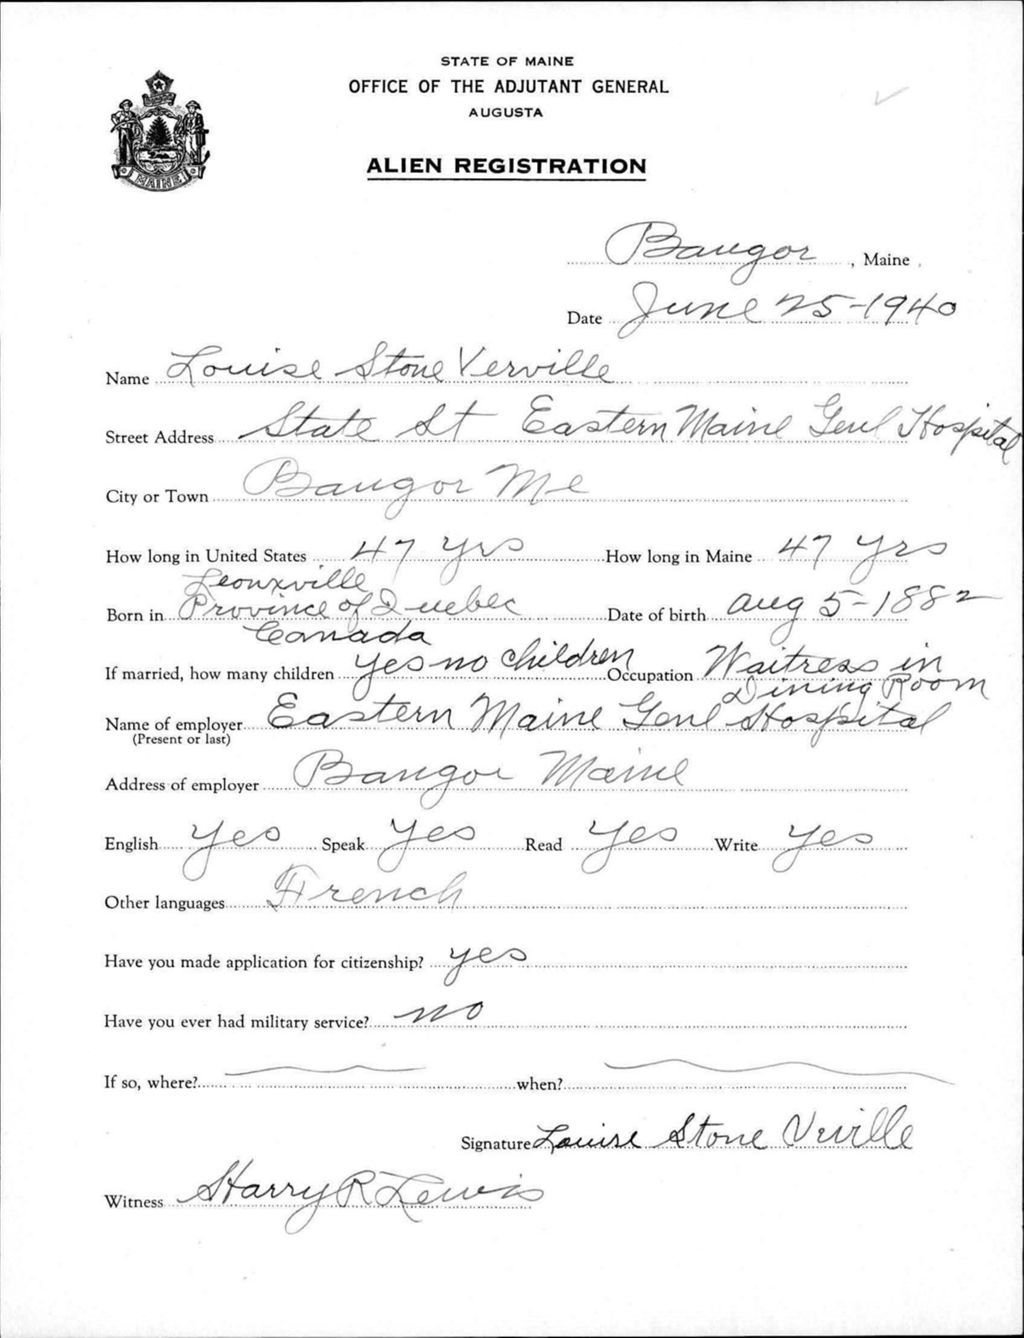 STATE OF MAINE
OFFICE OF THE ADJUTANT GENERAL
AUGUSTA
MAINE
ALIEN REGISTRATION
Bangor, Maine
Date June 25-1940
Name Louise Stone Verville
Street Address State St Eastern Maine Genl Hospital
City or Town Bangor Me
How long in United States 47 yrs How long in Maine 47 yrs
Leonxville
Born in Province of Quebec Date of birth Aug 5-1882
Canada
If married, how many children yes no children Occupation Waitress in
Dining Room
Name of employer Eastern Maine Genl Hospital
(Present or last)
Address of employer Bangor Maine
English yes Speak yes Read yes Write yes
Other languages French
Have you made application for citizenship? yes
Have you ever had military service? no
If so, where? when?
Signature Louise Stone Verville
Witness Harry R Lewis